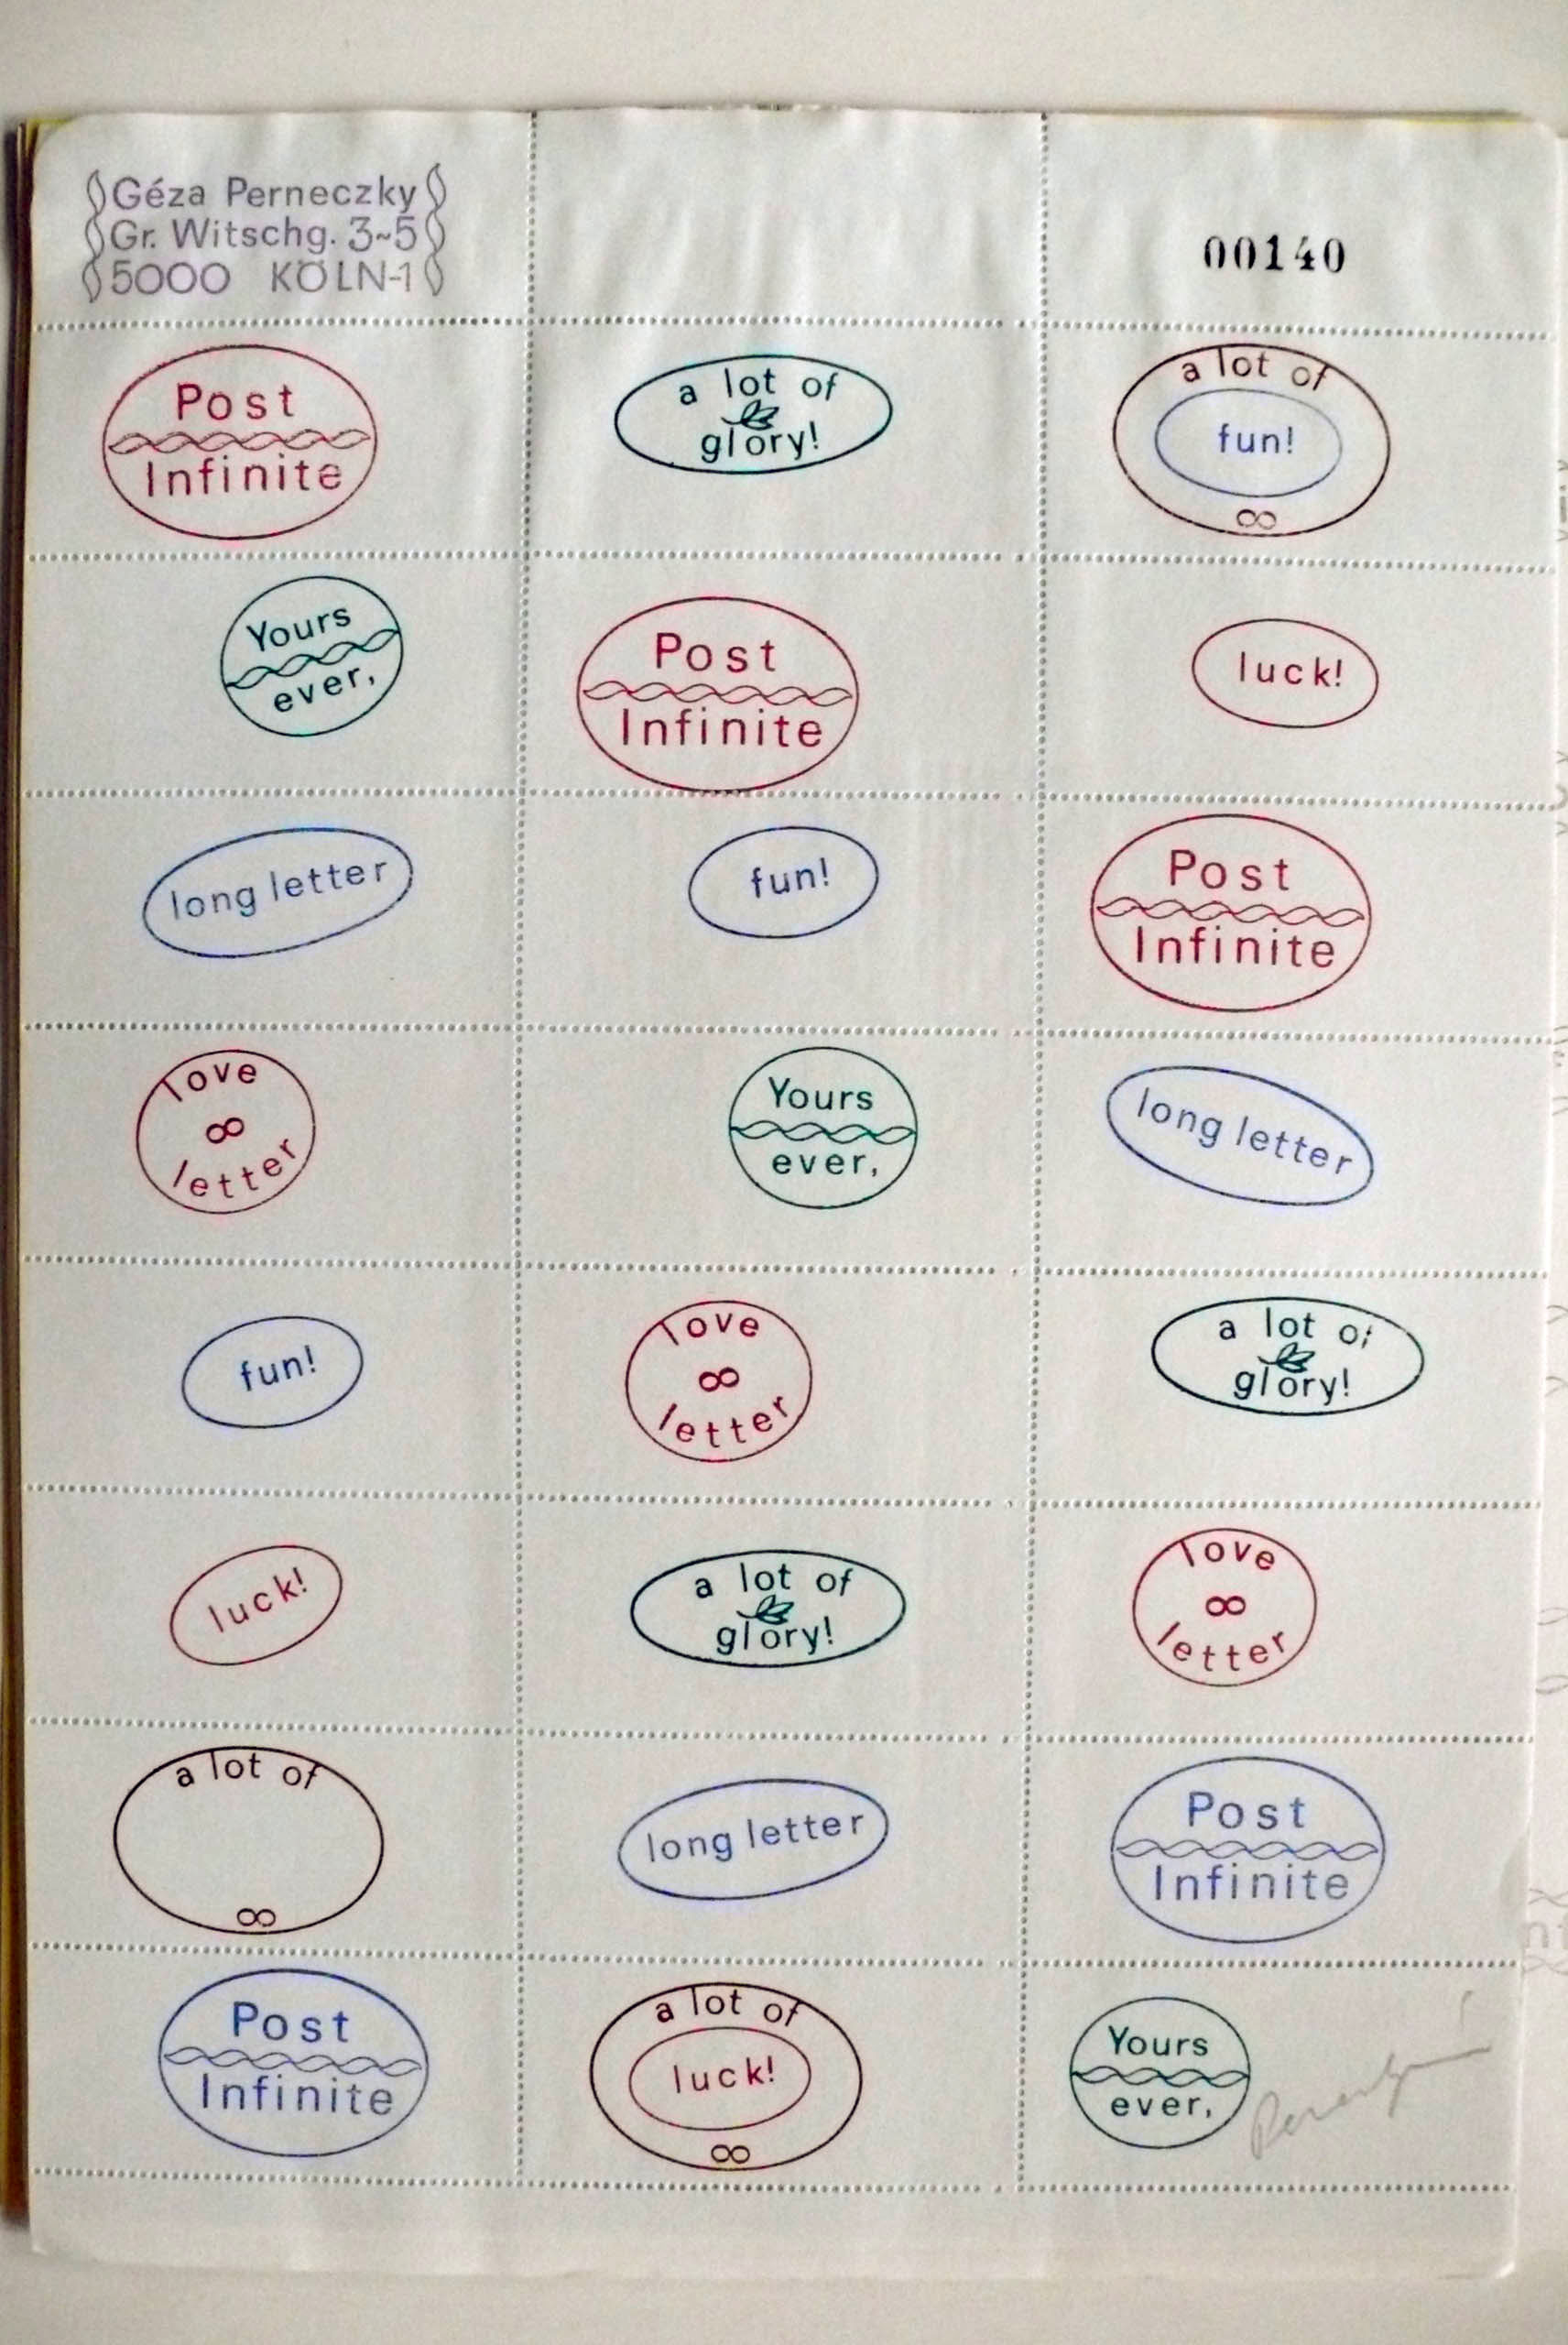 Géza Perneczky
Gr. Witschg. 3~5
5000 KÖLN-1
00140
Post
Infinite
a lot of
glory!
a lot of
fun!
∞
Yours
ever,
Post
Infinite
luck!
long letter
fun!
Post
Infinite
love
∞
letter
Yours
ever,
long letter
fun!
love
∞
letter
a lot of
glory!
luck!
a lot of
glory!
love
∞
letter
a lot of
∞
long letter
Post
Infinite
Post
Infinite
a lot of
luck!
∞
Yours
ever,